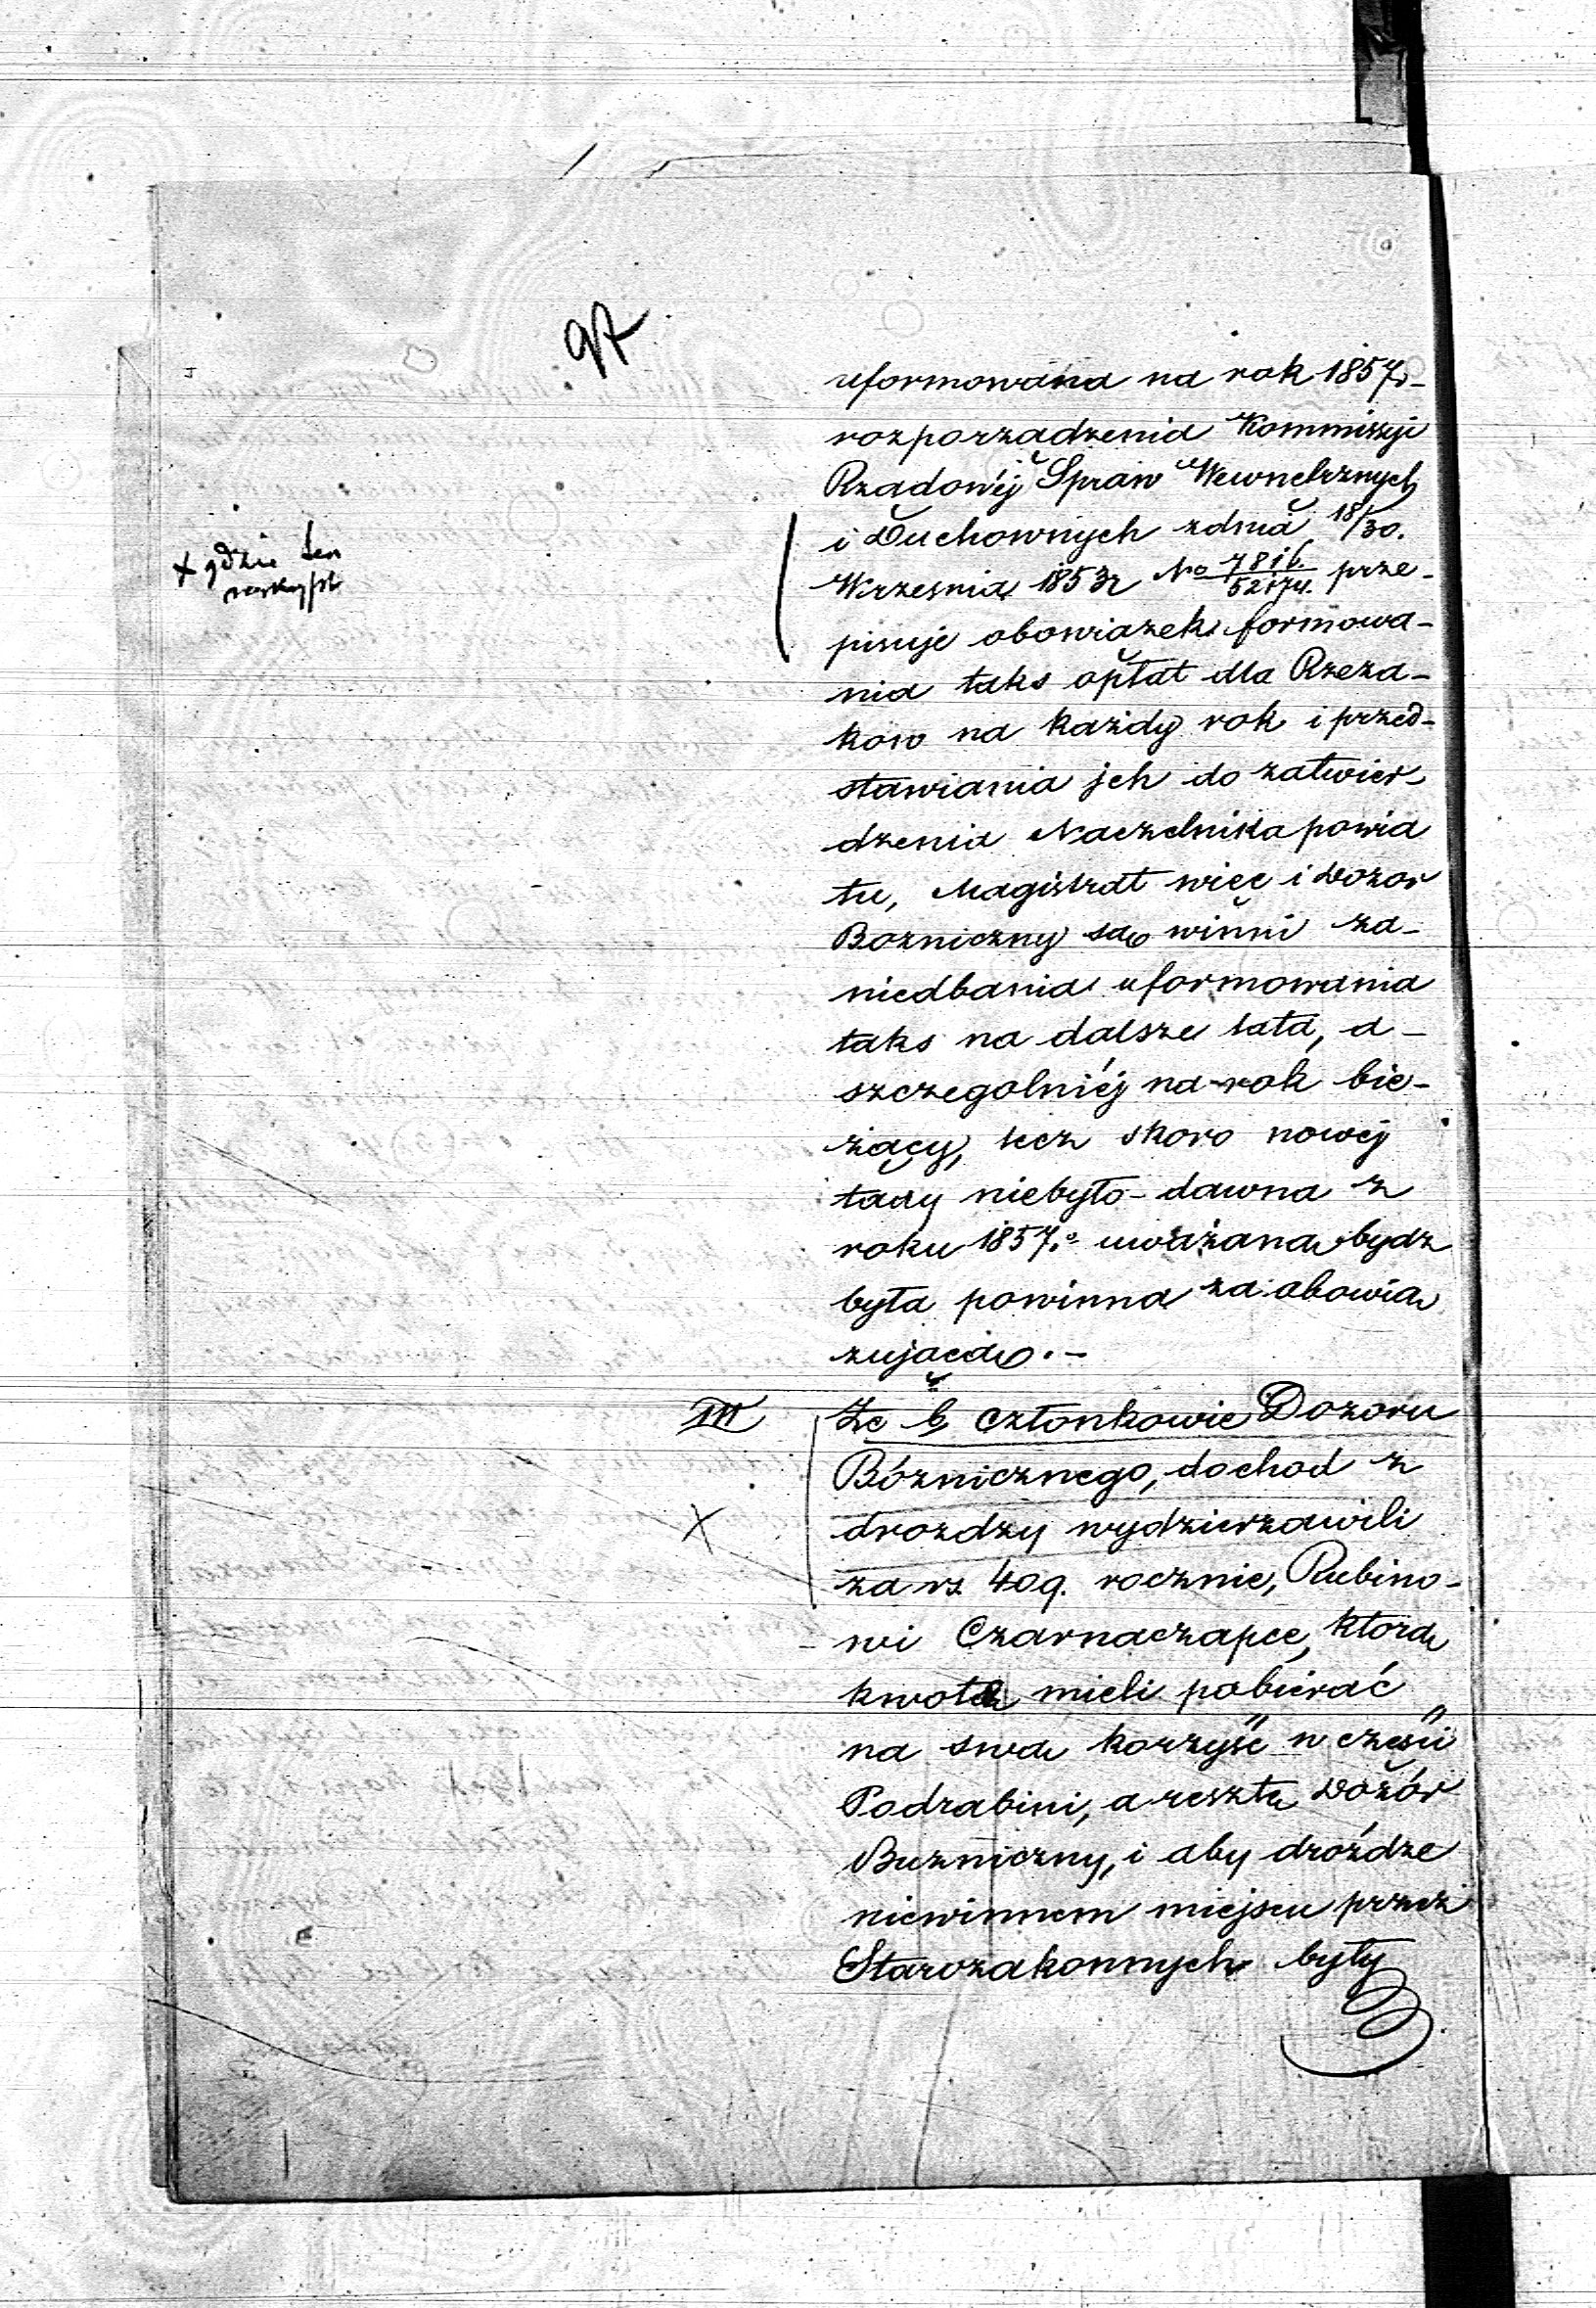 97
uformowana na rok 1857.-
rozporządzenia Kommissyi
Rządowéj Spraw Wewnętrznych
i Duchownych zdnia 18/30.
+ gdzie ten
reskrypt
Września 1853r No prze-
pisuje obowiązek formowa-
nia taks opłat dla Rzeza-
kow na każdy rok i przed-
stawiania jch do zatwier-
dzenia Naczelnika powia
tu, Magistrat więc i Dozor
Bozniczny są winni za-
niedbania uformowania
taks na dalsze lata, a-
szczegolniéj na rok bie-
żący, lecz skoro nowej
taxy niebyło- dawna z
roku 1857.o uważana bydz
była powinna za obowią
zującą.-
III Że b. członkowie Dozoru
Bóżnicznego, dochod z
X drozdzy wydzierzawili
za rs. 409. rocznie, Rubino-
wi Czarnaczapce, ktorą
kwotę mieli pobiérać
na swą korzyść w części
Podrabini, a resztę Dozór
Buzniczny, i aby droźdze
niewinnem miejscu przez
Starozakonnych były